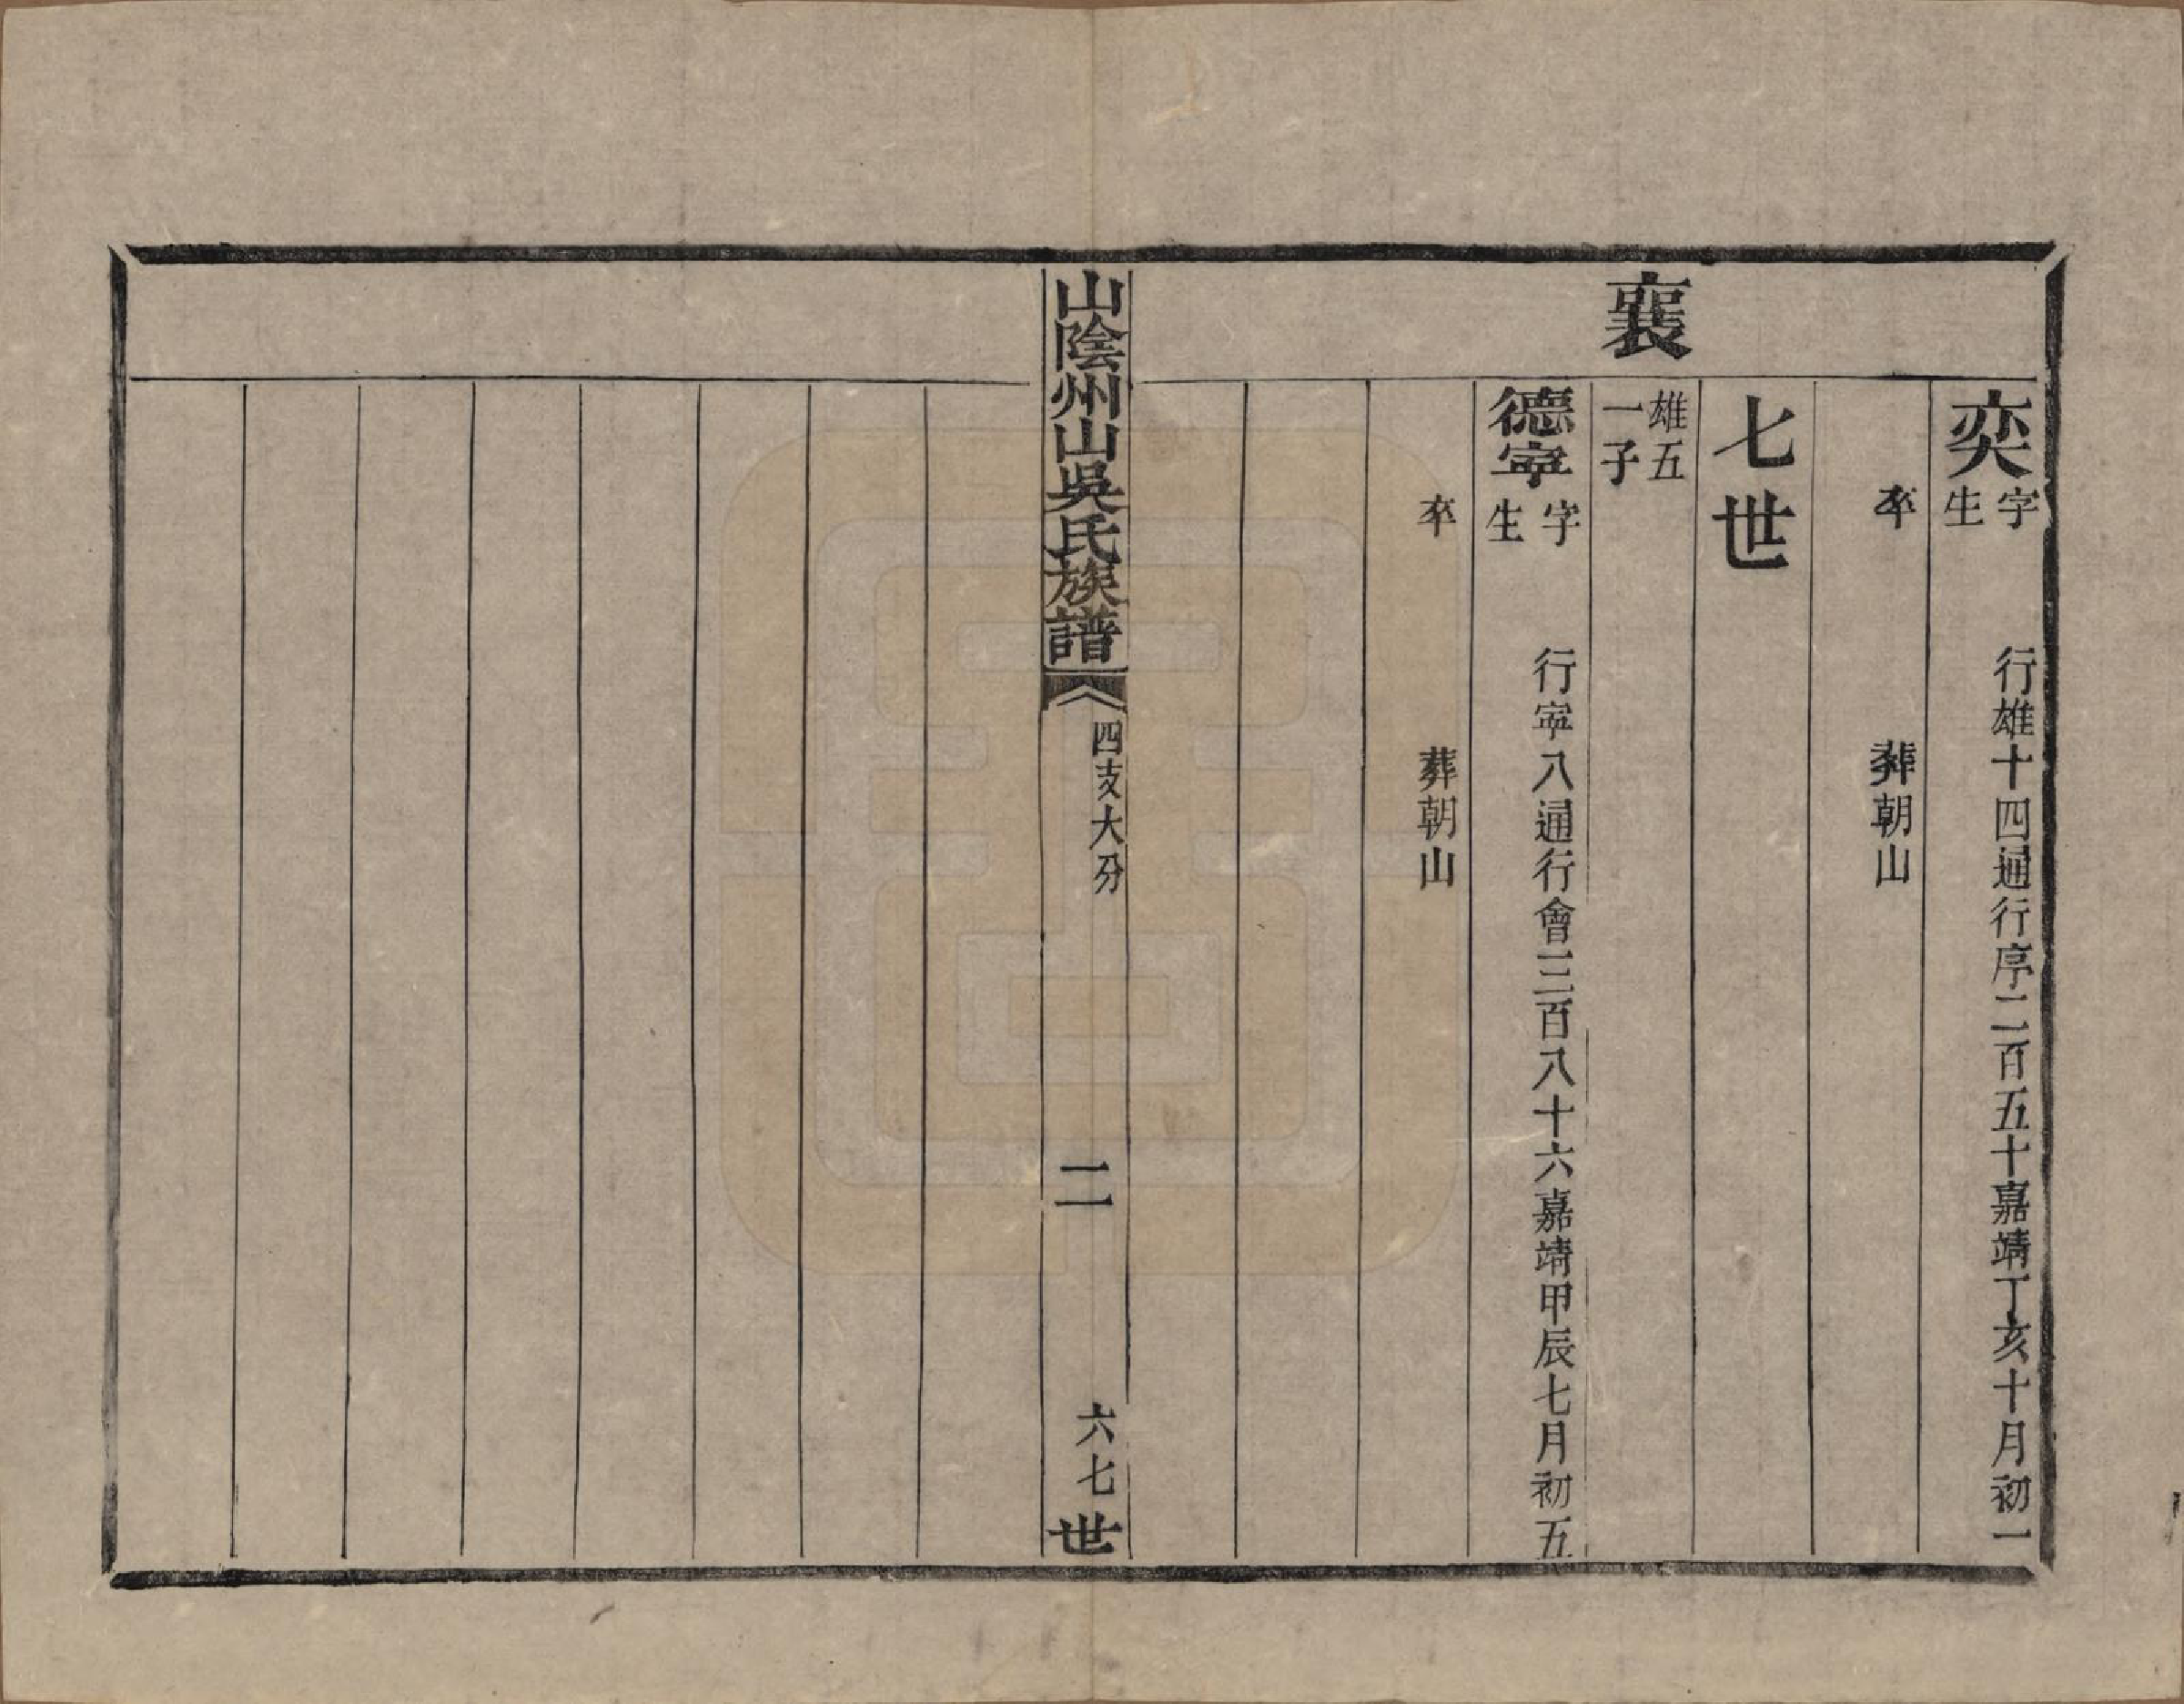 奕字　　行雄十四通行序二百五十嘉靖丁亥十月初一
生
卒　　葬朝山
七世
襄
雄五
一子
德寧字　　行寧八通行會三百八十六嘉靖甲辰七月初五
生
卒　　葬朝山
山陰州山吳氏族譜
四支大分
二
六七世